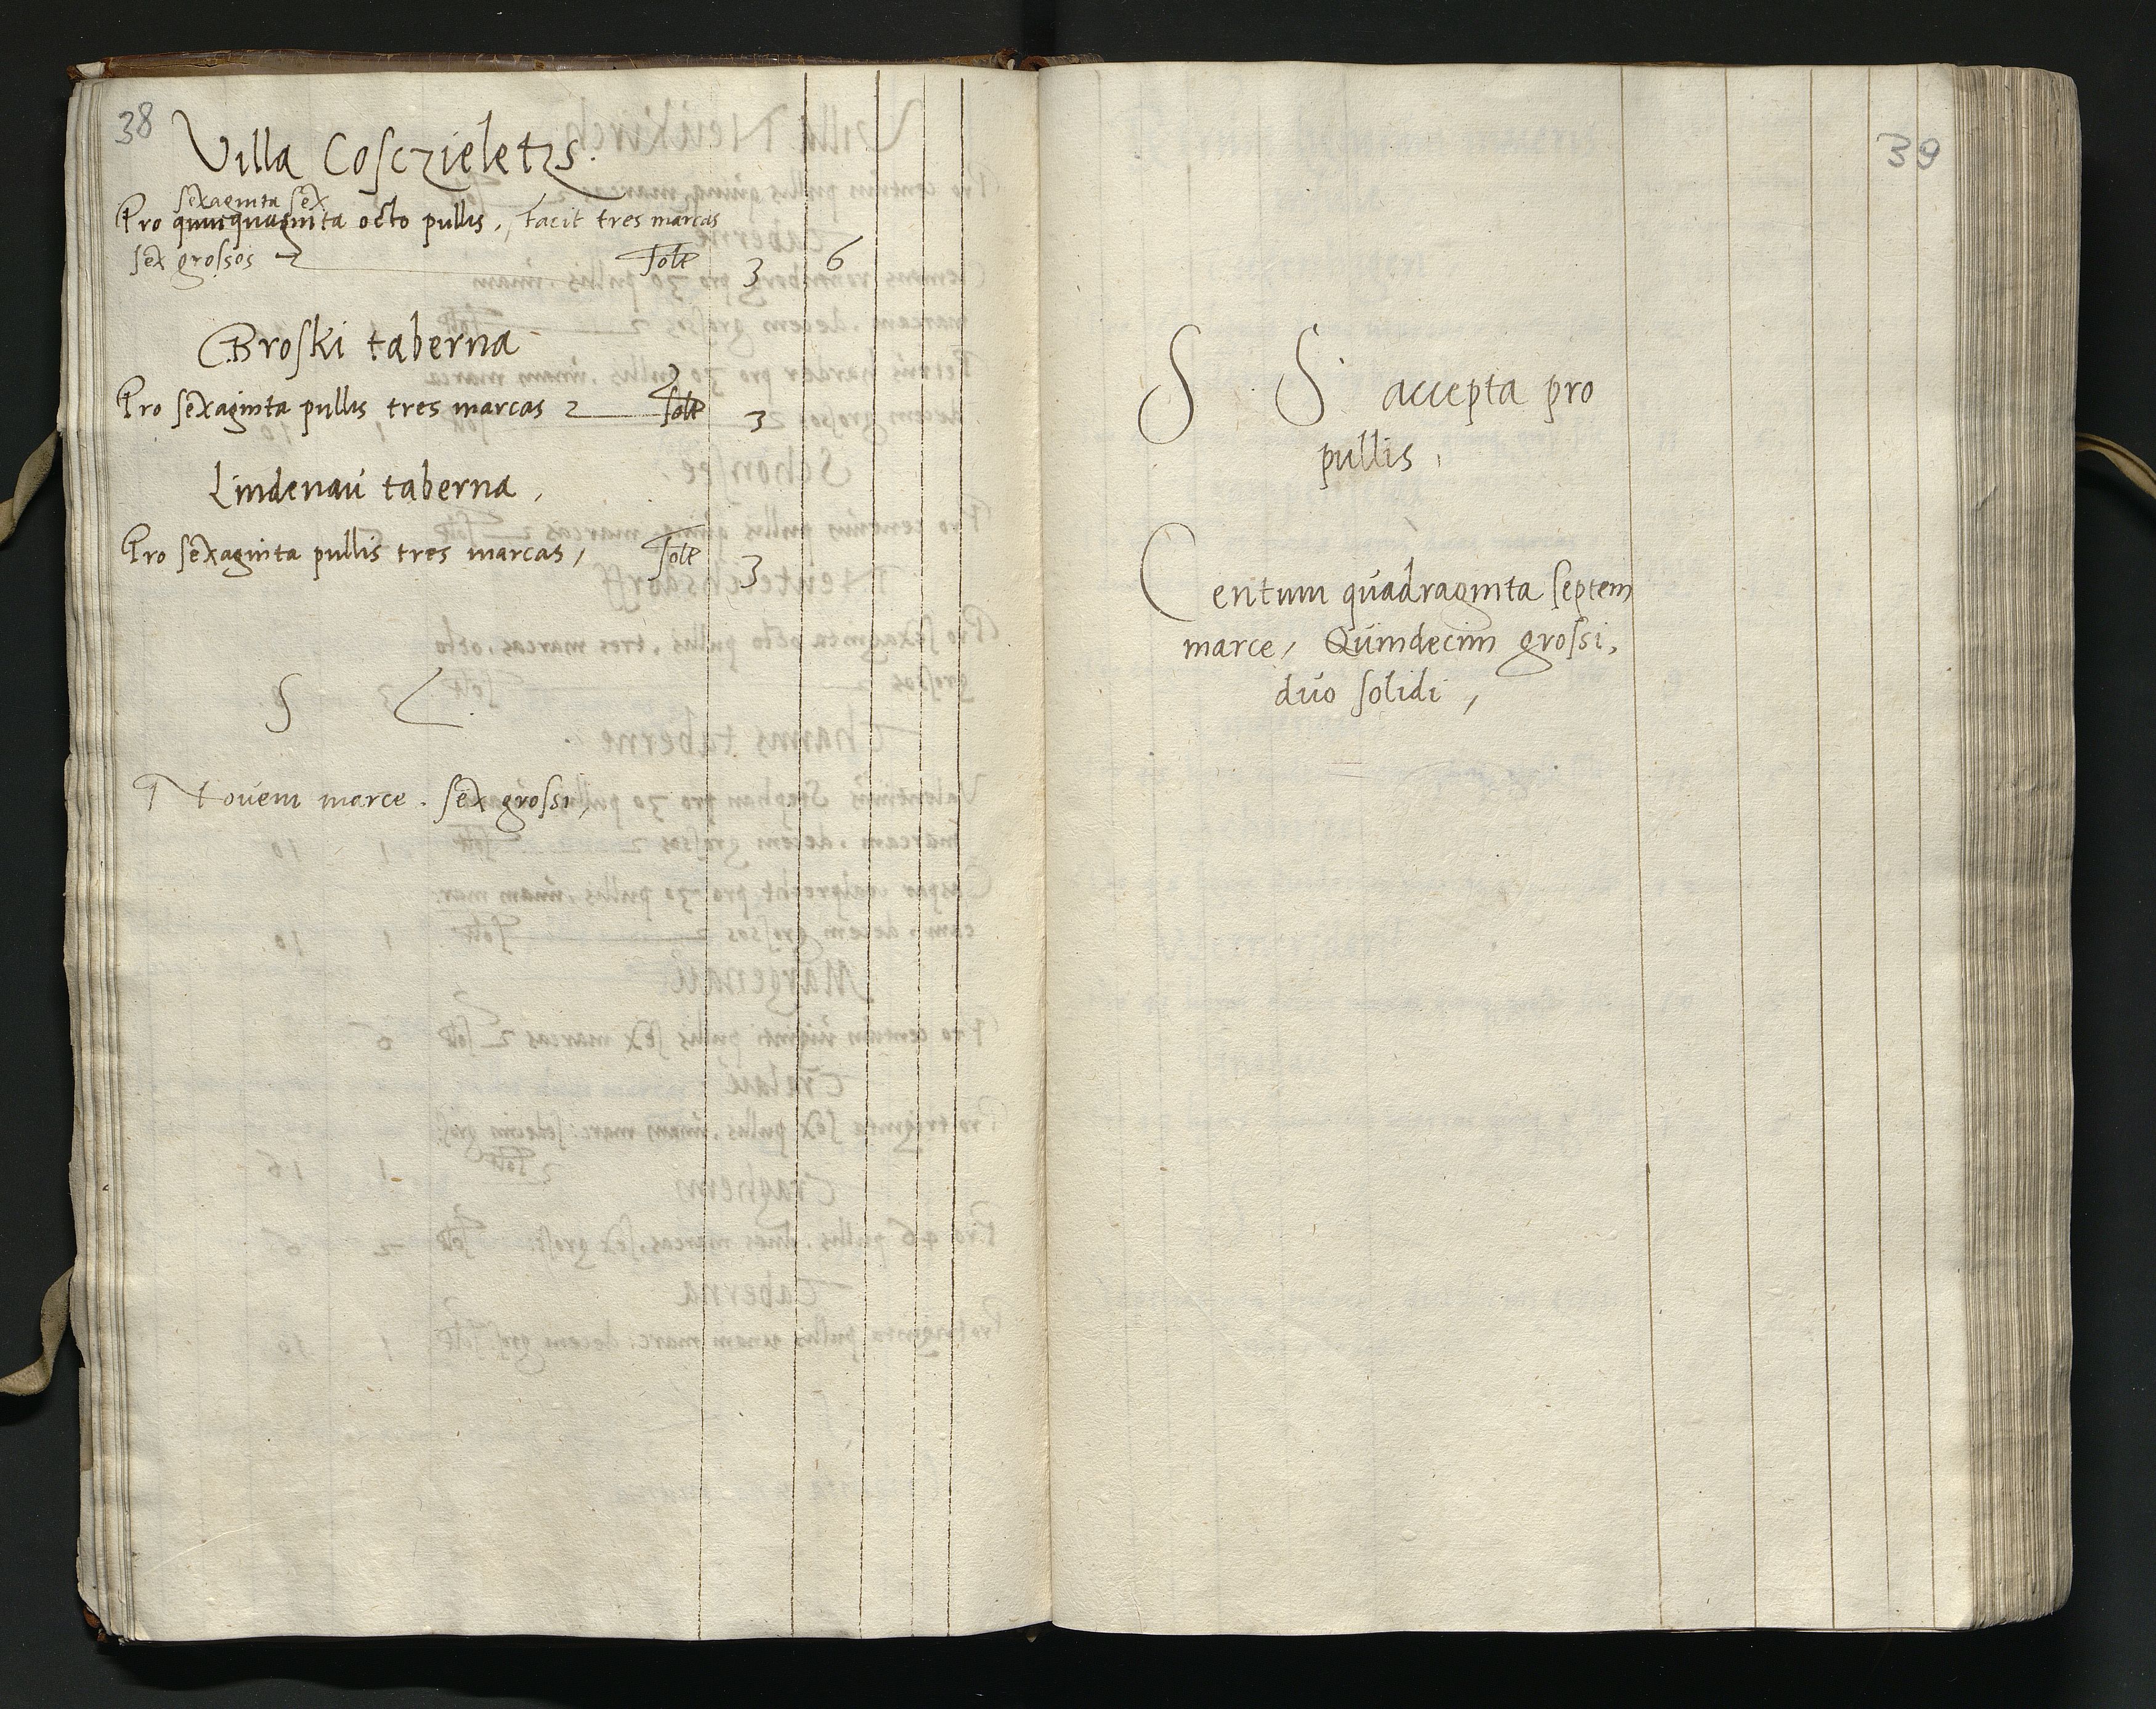 38
Villa Cosczieletzs.
sexaginta sex
Pro quinquaginta octo pullis, facit tres marcas
sex grossos 3 6
Broski taberna
Pro sexaginta pullis tres marcas 3
Lindenau taberna,
Pro sexaginta pullis tres marcas, 3
S L
Novem marce. sex grossi,
39
S S accepta pro
pullis,
Centum quadraginta septem
marce, Quindecim grossi,
duo solidi,